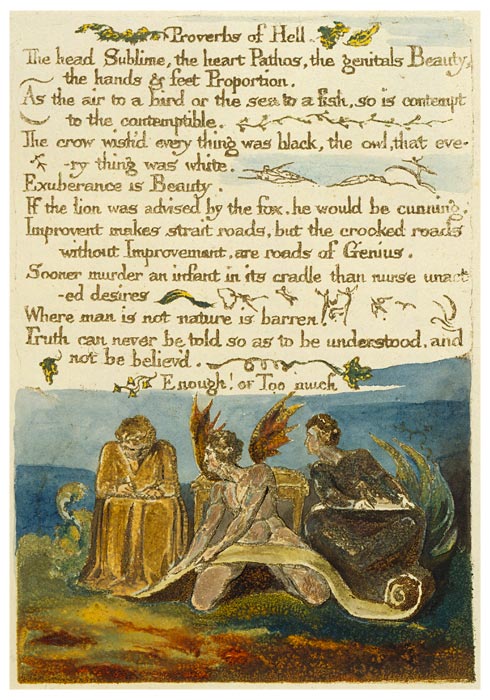 Proverbs of Hell
The head Sublime, the heart Pathos, the genitals Beauty,
the hands & feet Proportion.
As the air to a bird or the sea to a fish, so is contempt
to the contemptible.
The crow wish'd every thing was black, the owl, that eve-
-ry thing was white.
Exuberance is Beauty.
If the lion was advised by the fox. he would be cunning.
Improvent makes strait roads, but the crooked roads
without Improvement, are roads of Genius.
Sooner murder an infant in its cradle than nurse unact
-ed desires
Where man is not nature is barren.
Truth can never be told so as to be understood, and
not be believ'd.
Enough! or Too much